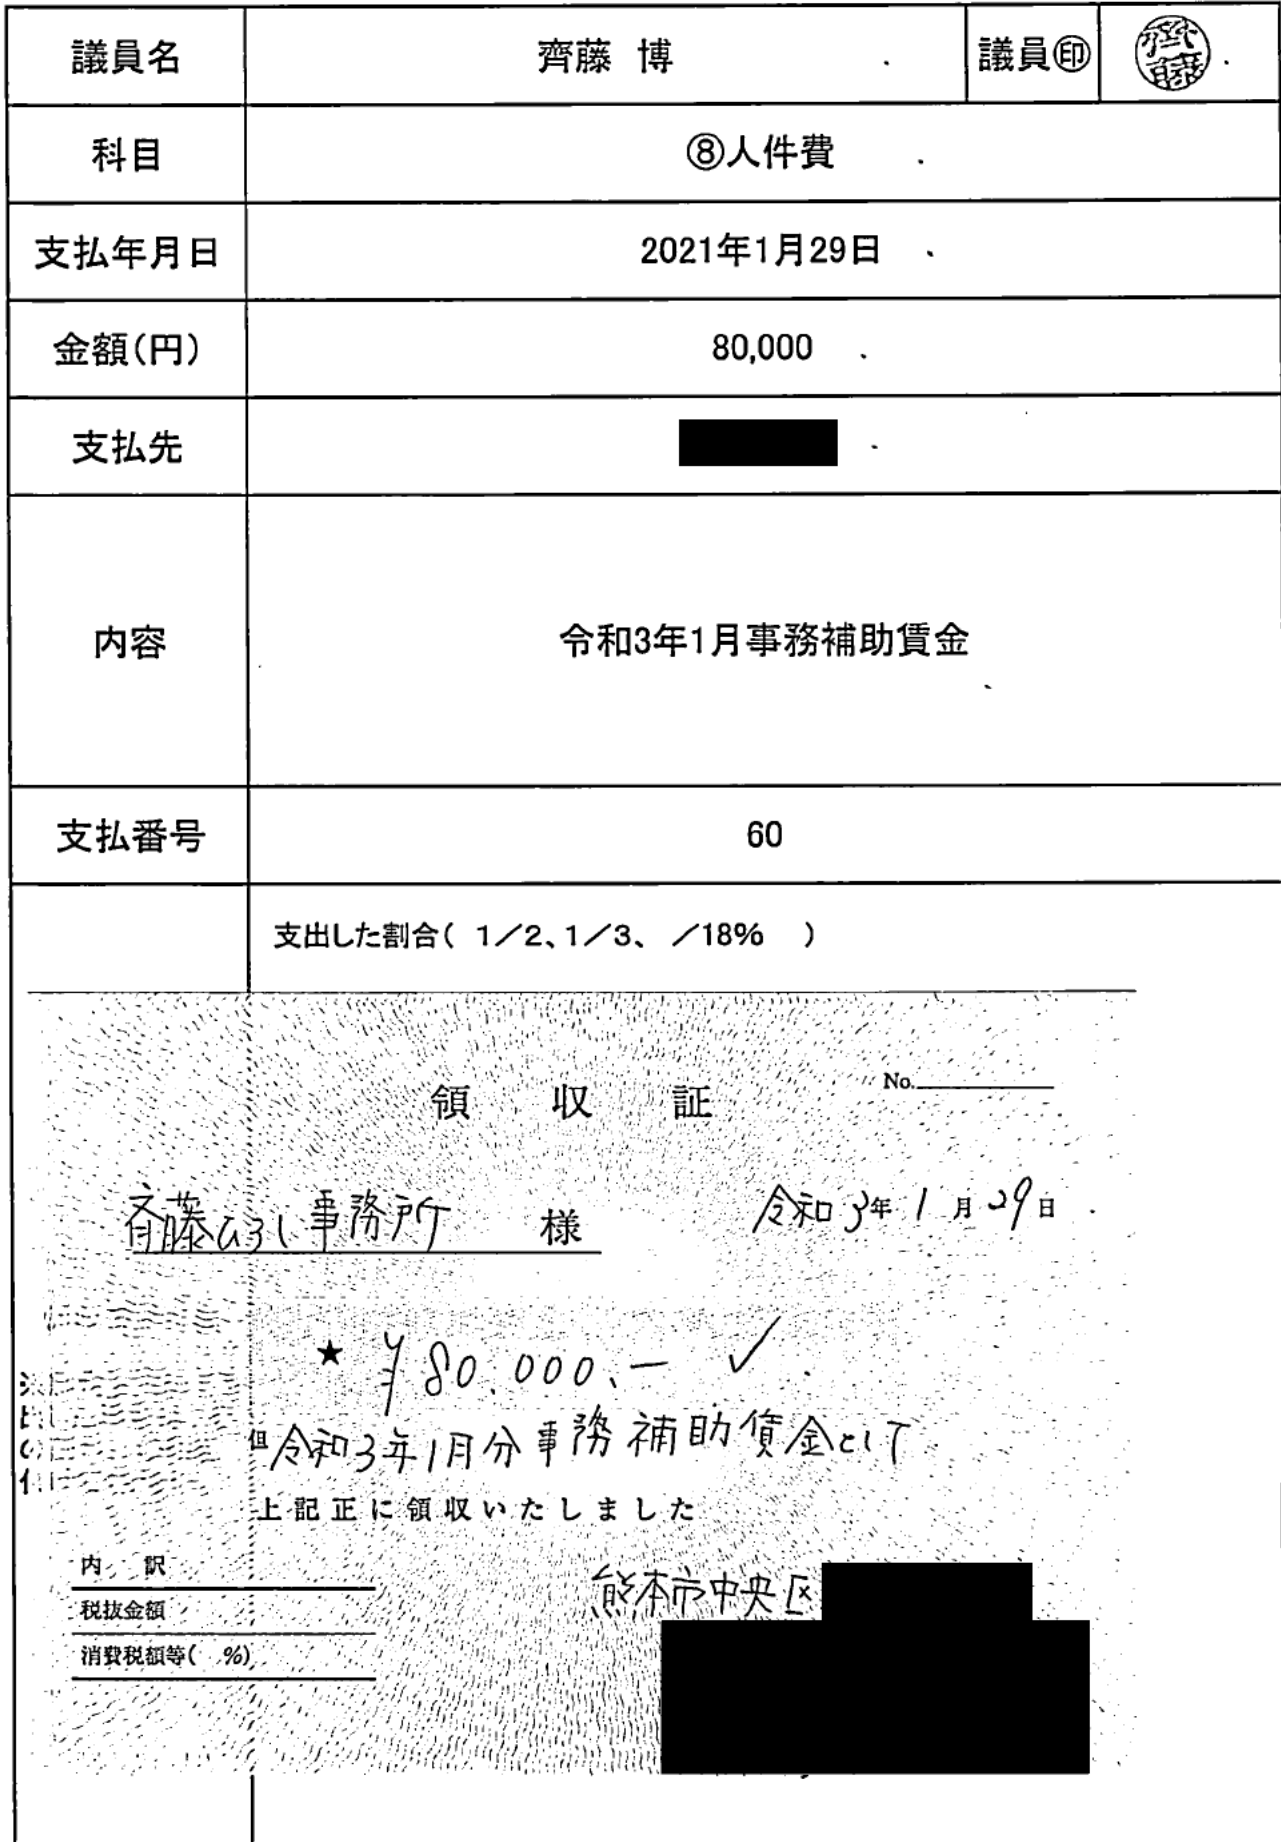 議員名 齊藤 博 議員㊞ 齊藤
科目 ⑧人件費
支払年月日 2021年1月29日
金額(円) 80,000
支払先
内容 令和3年1月事務補助賃金
支払番号 60
支出した割合( 1/2、1/3、 /18% )
領収証 No.
斉藤ひろし事務所 様 令和3年1月29日
★ ¥80.000.-
但 令和3年1月分事務補助賃金として
上記正に領収いたしました
内訳
税抜金額
消費税額等( %)
熊本市中央区